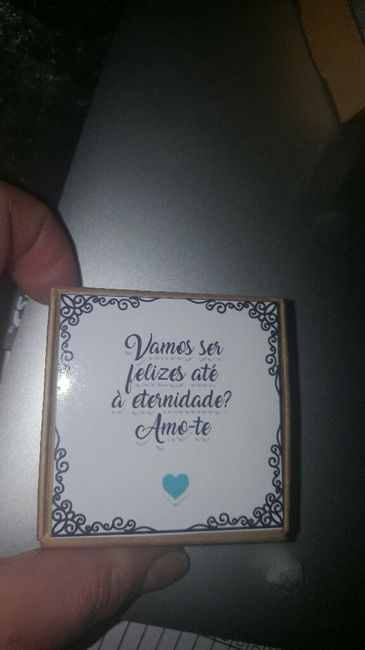 Vamos ser
felizes até
à eternidade?
Amo-te